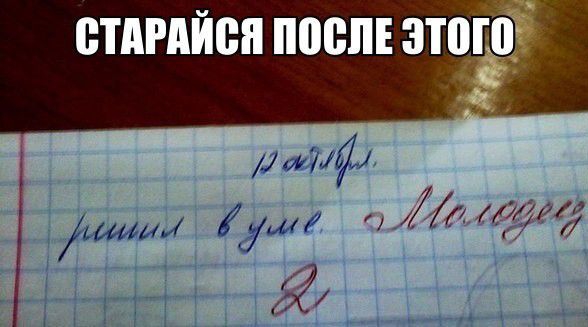 СТАРАЙСЯ ПОСЛЕ ЭТОГО
12 октября.
решил в уме. Молодец
2